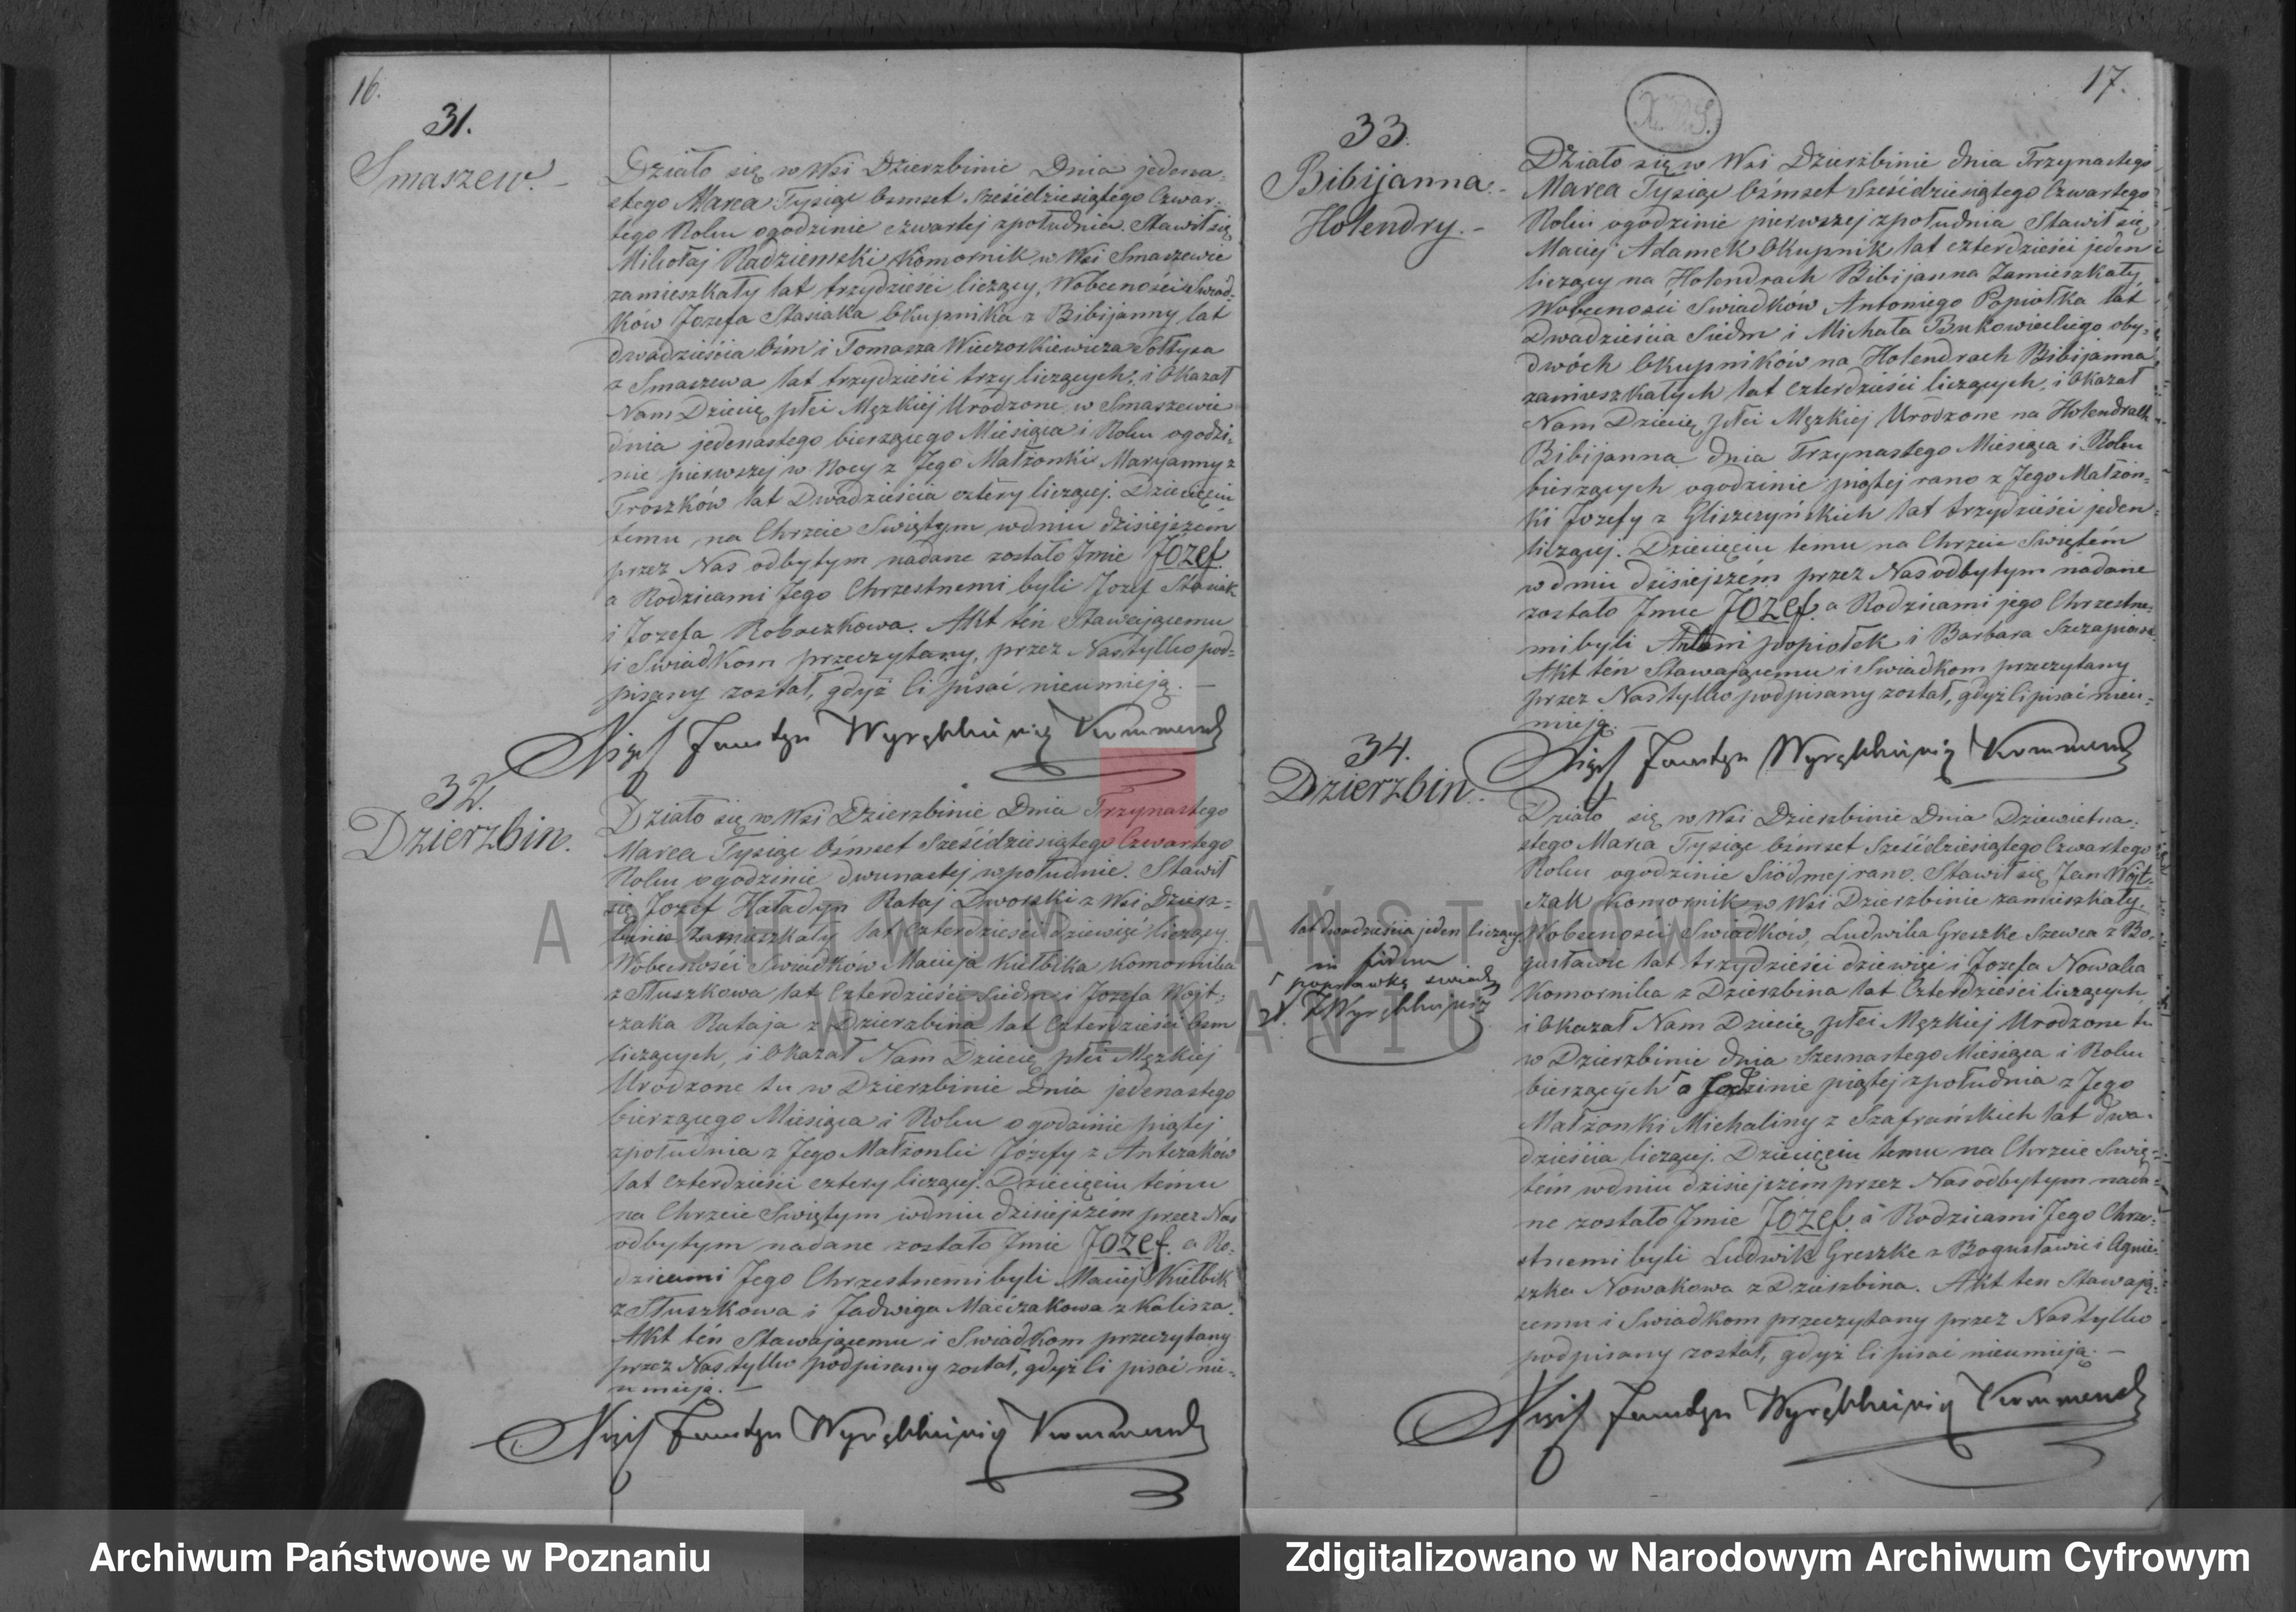 16.
31.
Smaszew. -
Działo się w Wsi Dzierzbinie Dnia jedena-
stego Marca Tysiąc Ośmset Sześćdziesiątego Czwar-
tego Roku ogodzinie czwartej zpołudnia. Stawił się
Mikołaj Radziemski Komornik w Wsi Smaszewie
zamieszkały lat trzydzieści liczący, Wobecności Swiad-
ków Jozefa Stasiaka Okupnika z Bibijanny lat
dwadzieścia Ośm i Tomasza Wieczorkiewicza Sołtysa
z Smaszewa lat trzydzieści trzy liczących, i Okazał
Nam Dziecię płci Męzkiej Urodzone w Smaszewie
dnia jedenastego bierzącego Miesiąca i Roku ogodzi-
nie pierwszej w Nocy z Jego Małżonki Maryanny z
Troszków lat Dwadzieścia cztery liczącej. Dziecięciu
temu na Chrzcie Swiętym wdniu dzisiejszém
przez Nas odbytym nadane zostało Jmie Józef
a Rodzicami Jego Chrzestnemi byli Jozef Stasiak
i Jozefa Robaczkowa. Akt ten Stawającemu
i Swiadkom przeczytany, przez Nas tylko pod-
pisany został, gdyż Ci pisać nieumieją. -
Faustyn Kommend
32.
Dzierzbin.
Działo się w Wsi Dzierzbinie Dnia Trzynastego
Marca Tysiąc Ośmset Sześćdziesiątego Czwartego
Roku ogodzinie dwunastej wpołudnie. Stawił
się Jozef Haładyn Rataj Dworski z Wsi Dzierz-
binie Zamieszkały lat Czterdzieści dziewięć liczący
Wobecności Swiadków Macieja Kiełbika Komornika
z Słuszkowa lat Czterdzieści Siedm i Jozefa Wojt-
czaka Rataja z Dzierzbina lat Czterdzieści Ośm
liczących, i Okazał Nam Dziecię płci Męzkiej
Urodzone tu w Dzierzbinie Dnia jedenastego
bierzącego Miesiąca i Roku o godzinie piątej
zpołudnia z Jego Małżonki Józefy z Antczaków
lat Czterdzieści cztery liczącej. Dziecięciu temu
na Chrzcie Swiętym wdniu dzisiejszém przez Nas
odbytym nadane zostało Jmie Jozef. a Ro-
dzicami Jego Chrzestnemi byli Maciej Kiełbik
z Słuszkowa i Jadwiga Maiczakowa z Kalisza.
Akt ten Stawającemu i Swiadkom przeczytany
przez Nas tylko podpisany został, gdyż Ci pisać nie-
umieją. -
Faustyn Kommend
17.
33.
Bibijanna. -
Holendry. -
Działo się w Wsi Dzierzbinie dnia Trzynastego
Marca Tysiąc Ośmset Sześćdziesiątego Czwartego
Roku ogodzinie pierwszej zpołudnia Stawił się
Maciej Adamek Okupnik lat czterdzieści jeden
liczący na Holendrach Bibijanna Zamieszkały
Wobecności Swiadków Antoniego Popiołka lat
Dwadzieścia Siedm i Michała Bukowieckiego oby-
dwóch Okupników na Holendrach Bibijanna
zamieszkałych lat Czterdzieści liczących, i Okazał
Nam Dziecię płci Męzkiej Urodzone na Holendrach
Bibijanna dnia Trzynastego Miesiąca i Roku
bierzących ogodzinie piątej rano z Jego Małżon-
ki Jozefy z Gliszczyńskich lat trzydzieści jeden
liczącej. Dziecięciu temu na Chrzcie Swiętém
wdniu dzisiejszém przez Nas odbytym nadane
zostało Jmie Jozef. a Rodzicami jego Chrzestne-
mi byli Antoni popiołek i Barbara
Akt ten Stawającemu i Swiadkom przeczytany
przez Nas tylko podpisany został, gdyż Ci pisać nieu-
mieją. -
Faustyn Kommend
34.
Dzierzbin.
Działo się w Wsi Dzierzbinie Dnia Dziewietna-
stego Marca Tysiąc Ośmset Sześćdziesiątego Czwartego
Roku ogodzinie Siódmej rano. Stawił się Jan Wojt-
czak Komornik w Wsi Dzierzbinie zamieszkały
lat dwadzieścia jeden liczący
in fidem
poprawkę
Wobecności Swiadków, Ludwika Greszke Szewca z Bo-
gusławic lat trzydzieści dziewięć i Jozefa Nowaka
Komornika z Dzierzbina lat Czterdzieści liczących
i Okazał Nam Dziecię płci Męzkiej Urodzone tu
w Dzierzbinie dnia Szesnastego Miesiąca i Roku
bierzących o godzinie piątej zpołudnia z Jego
Małżonki Michaliny z Szafrańskich lat dwa-
dzieścia liczącej. Dziecięciu temu na Chrzcie Swię-
tém wdniu dzisiejszém przez Nas odbytym nada-
ne zostało Jmie Józef. a Rodzicami Jego Chrze-
stnemi byli Ludwik Greszke z Bogusławic i Agnie-
szka Nowakowa z Dzierzbina. Akt ten Stawają-
cemu i Swiadkom przeczytany przez Nas tylko
podpisany został, gdyż Ci pisać nieumieją. -
Faustyn Kommend
ARCHIWUM PAŃSTWOWE
W POZNANIU
Archiwum Państwowe w Poznaniu
Zdigitalizowano w Narodowym Archiwum Cyfrowym